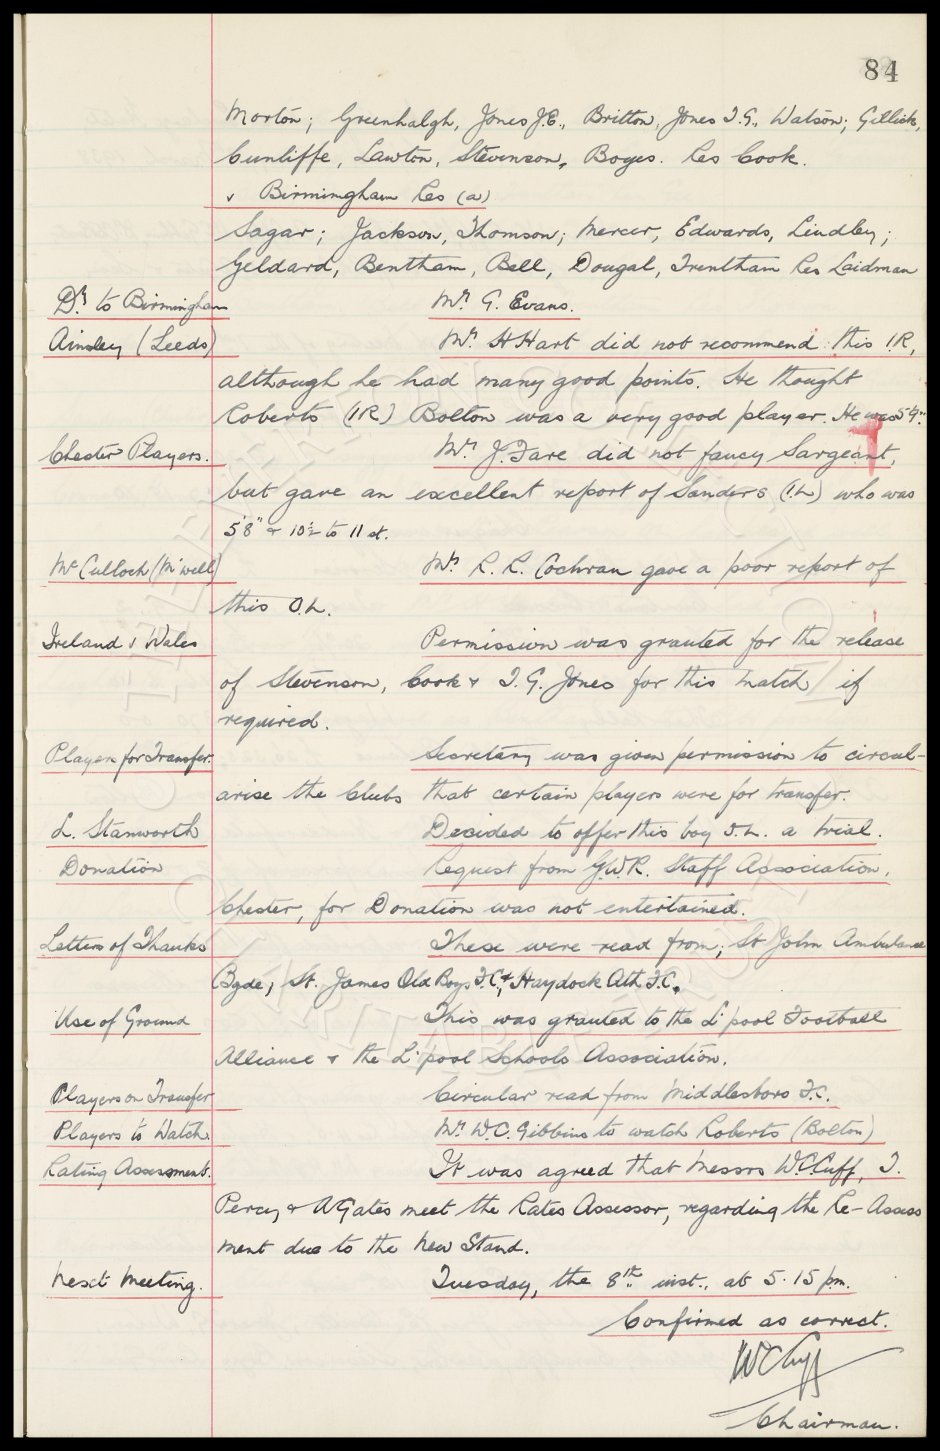 84
Morton; Greenhalgh, Jones J.E., Britton, Jones T.G., Watson; Gillick,
Cunliffe, Lawton, Stevenson, Boyes. Res Cook.
v Birmingham Res (a)
Sagar; Jackson, Thomson; Mercer, Edwards, Lindley;
Geldard, Bentham, Bell, Dougal, Trentham Res Laidman
Dr. to Birmingham Mr. G. Evans.
Ainsley (Leeds) Mr. H Hart did not recommend this I.R,
although he had many good points. He thought
Roberts (IR) Bolton was a very good player. He was 5'9".
Chester Players. Mr. J. Fare did not fancy Sargeant,
but gave an excellent report of Sanders (I.L) who was
5'8" & 10½ to 11 st.
McCulloch (M'well) Mr. R. R. Cochran gave a poor report of
this O.L.
Ireland v Wales Permission was granted for the release
of Stevenson, Cook & T. G. Jones for this match if
required.
Players for Transfer. Secretary was given permission to circul-
arise the Clubs that certain players were for transfer.
L. Stanworth Decided to offer this boy I.L. a trial.
Donation Request from G.W.R. Staff Association,
Chester, for Donation was not entertained.
Letters of Thanks These were read from; St John Ambulance
Bgde, St. James Old Boys F.C, & Haydock Ath F.C.
Use of Ground This was granted to the L'pool Football
Alliance & the L'pool Schools Association.
Players on Transfer Circular read from Middlesboro F.C.
Players to Watch. Mr. W.C. Gibbins to watch Roberts (Bolton)
Rating Assessment. It was agreed that Messrs W.C. Cuff, T.
Percy & A Gates meet the Rates Assessor, regarding the Re-Assess
ment due to the New Stand.
Next Meeting. Tuesday, the 8th. inst., at 5.15 pm.
Confirmed as correct.
W C Cuff
Chairman.